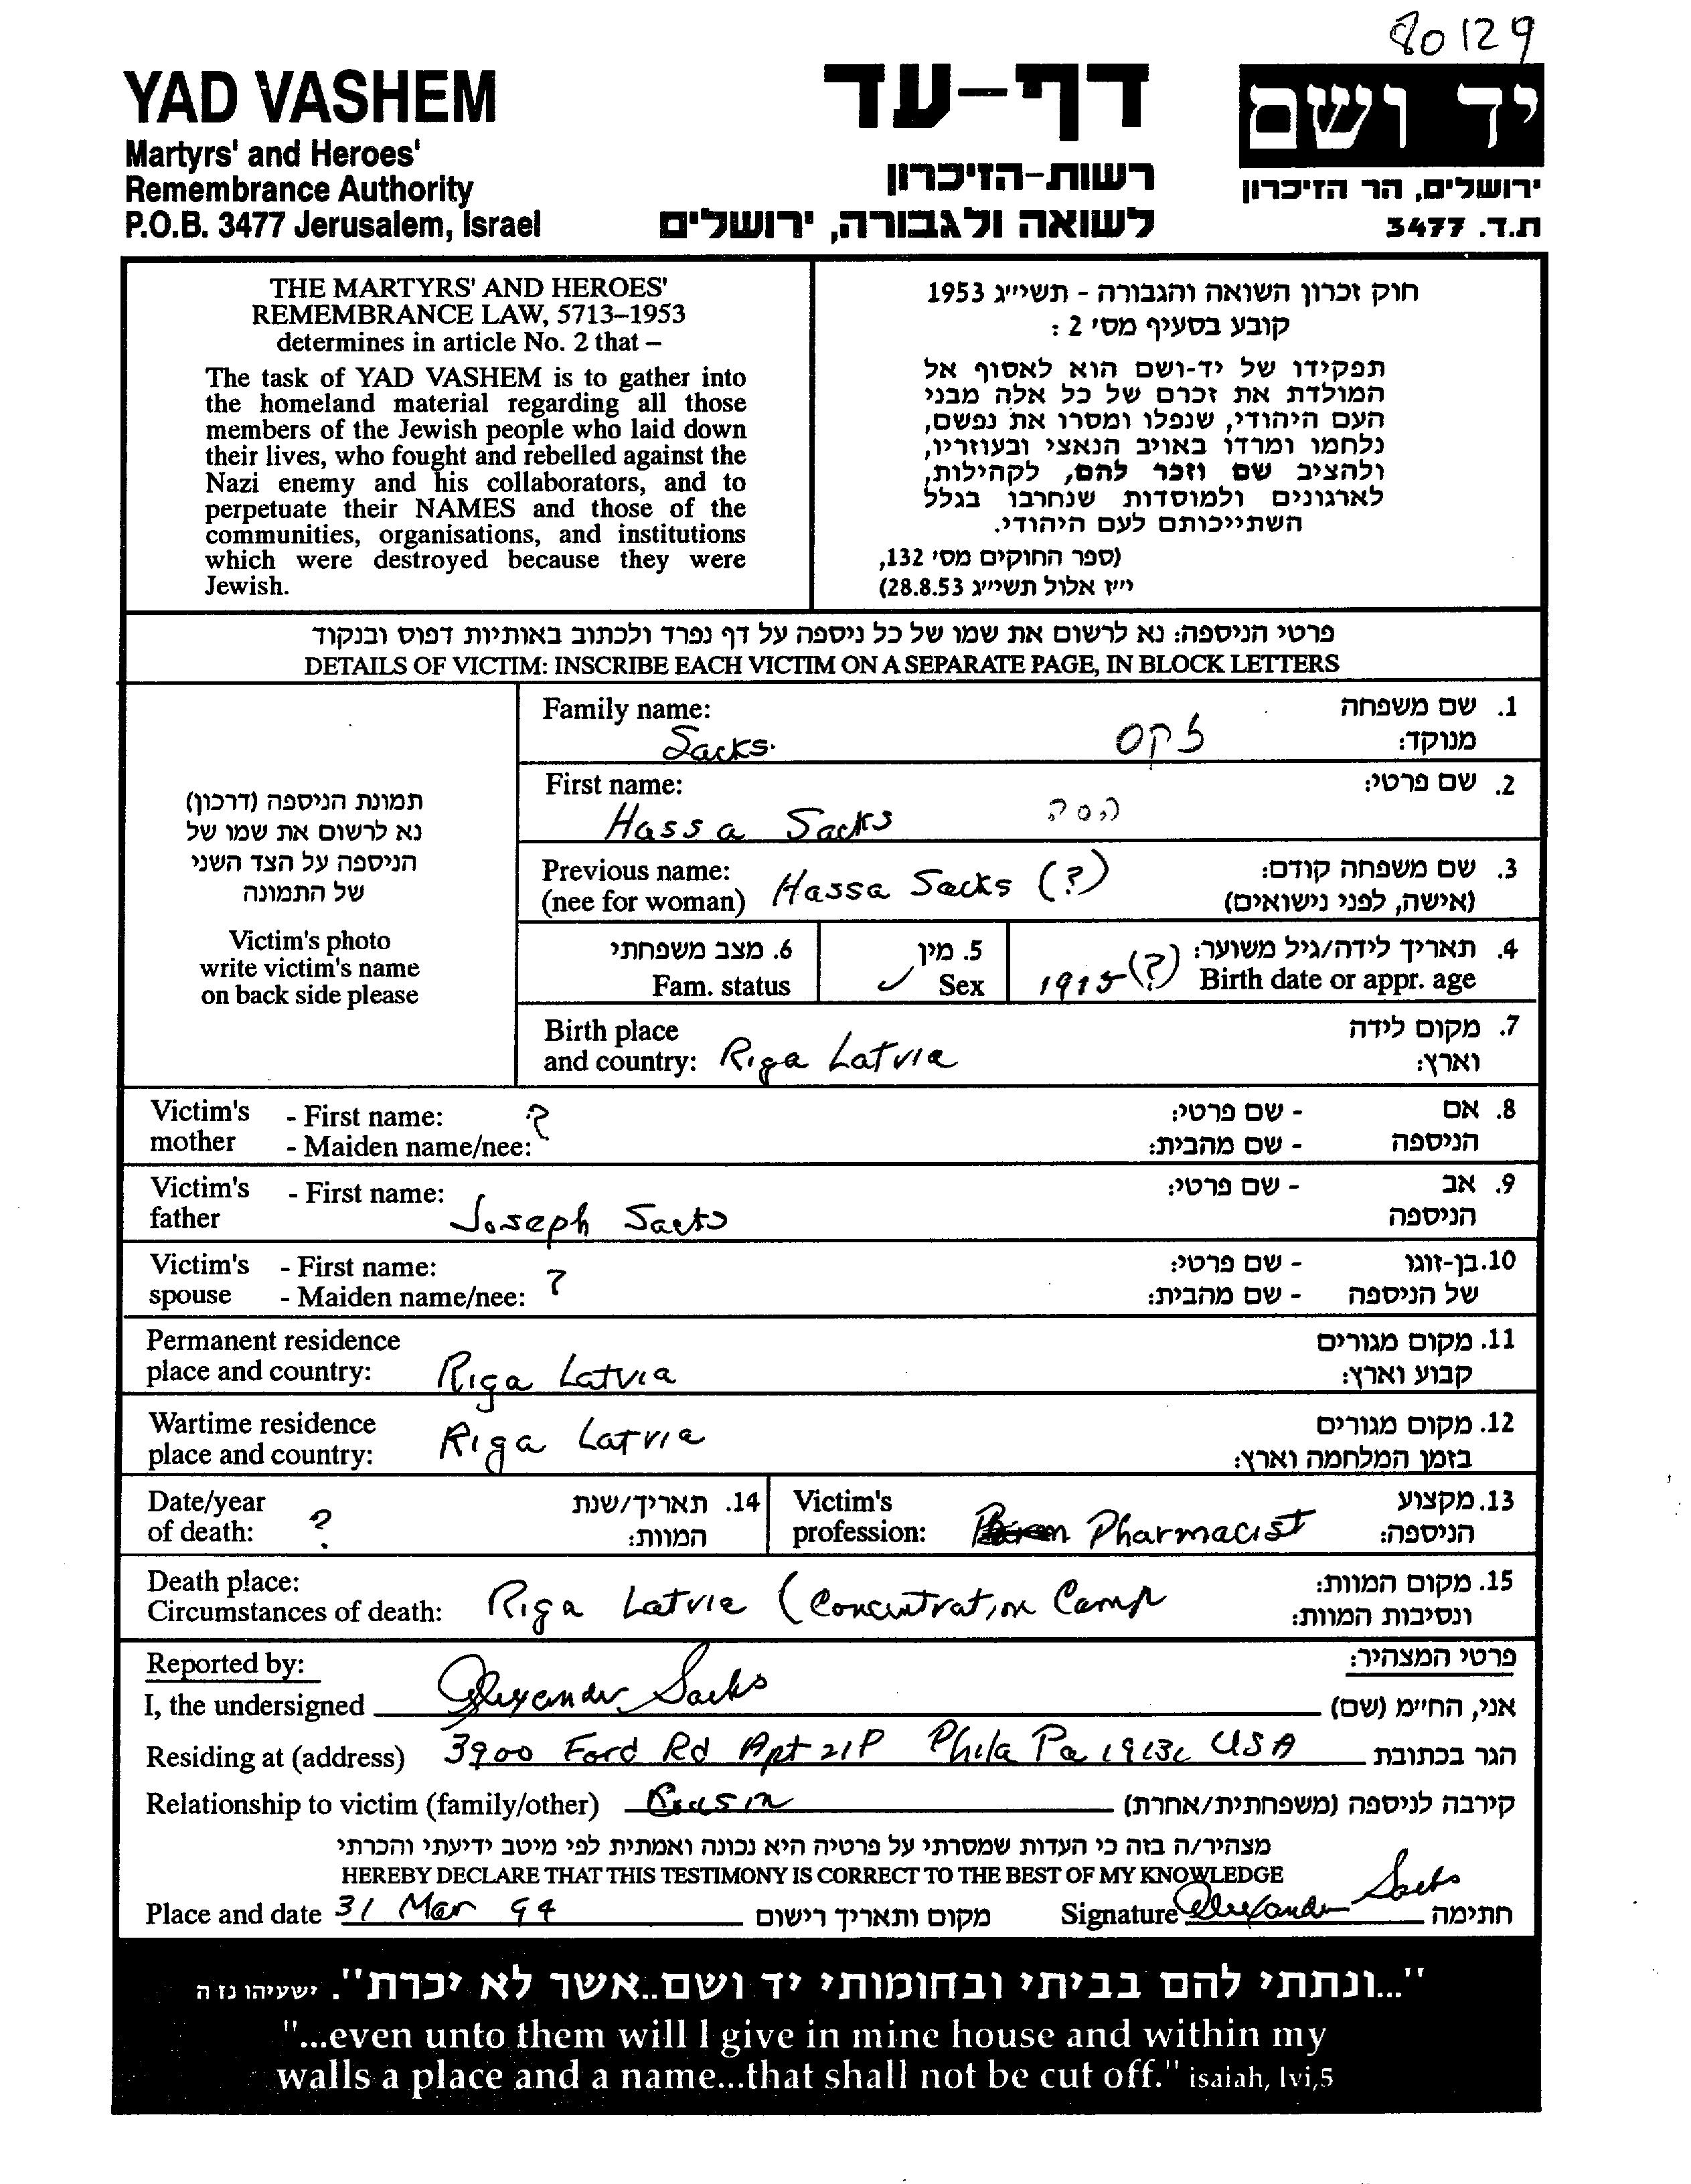 80129
YAD VASHEM
Martyrs' and Heroes'
Remembrance Authority
P.O.B. 3477 Jerusalem, Israel
דף-עד
רשות-הזיכרון
לשואה ולגבורה, ירושלים
יד ושם
ירושלים, הר הזיכרון
ת.ד. 3477
THE MARTYRS' AND HEROES'
REMEMBRANCE LAW, 5713–1953
determines in article No. 2 that –
The task of YAD VASHEM is to gather into
the homeland material regarding all those
members of the Jewish people who laid down
their lives, who fought and rebelled against the
Nazi enemy and his collaborators, and to
perpetuate their NAMES and those of the
communities, organisations, and institutions
which were destroyed because they were
Jewish.
חוק זכרון השואה והגבורה - תשי״ג 1953
קובע בסעיף מס׳ 2 :
תפקידו של יד-ושם הוא לאסוף אל
המולדת את זכרם של כל אלה מבני
העם היהודי, שנפלו ומסרו את נפשם,
נלחמו ומרדו באויב הנאצי ובעוזריו,
ולהציב שם וזכר להם, לקהילות,
לארגונים ולמוסדות שנחרבו בגלל
השתייכותם לעם היהודי.
(ספר החוקים מס׳ 132,
י״ז אלול תשי״ג 28.8.53)
פרטי הניספה: נא לרשום את שמו של כל ניספה על דף נפרד ולכתוב באותיות דפוס ובנקוד
DETAILS OF VICTIM: INSCRIBE EACH VICTIM ON A SEPARATE PAGE, IN BLOCK LETTERS
תמונת הניספה (דרכון)
נא לרשום את שמו של
הניספה על הצד השני
של התמונה
Victim's photo
write victim's name
on back side please
Family name: 1. שם משפחה
Sacks. זקס מנוקד:
First name: 2. שם פרטי:
Hassa Sacks הסה
Previous name: 3. שם משפחה קודם:
(nee for woman) Hassa Sacks (?) (אישה, לפני נישואים)
6. מצב משפחתי 5. מין 4. תאריך לידה/גיל משוער:
Fam. status ✓ Sex 1915 (?) Birth date or appr. age
Birth place 7. מקום לידה
and country: Riga Latvia וארץ:
Victim's - First name: ? - שם פרטי: 8. אם
mother - Maiden name/nee: - שם מהבית: הניספה
Victim's - First name: - שם פרטי: 9. אב
father Joseph Sacks הניספה
Victim's - First name: ? - שם פרטי: 10. בן-זוגו
spouse - Maiden name/nee: - שם מהבית: של הניספה
Permanent residence 11. מקום מגורים
place and country: Riga Latvia קבוע וארץ:
Wartime residence 12. מקום מגורים
place and country: Riga Latvia בזמן המלחמה וארץ:
Date/year 14. תאריך/שנת Victim's 13. מקצוע
of death: ? המוות: profession: Pharmacist הניספה:
Death place: 15. מקום המוות:
Circumstances of death: Riga Latvia (Concentration Camp ונסיבות המוות:
Reported by: פרטי המצהיר:
I, the undersigned Alexander Sacks אני, החי״מ (שם)
Residing at (address) 3900 Ford Rd Apt 21P Phila Pa USA הגר בכתובת
Relationship to victim (family/other) קירבה לניספה (משפחתית/אחרת)
מצהיר/ה בזה כי העדות שמסרתי על פרטיה היא נכונה ואמתית לפי מיטב ידיעתי והכרתי
HEREBY DECLARE THAT THIS TESTIMONY IS CORRECT TO THE BEST OF MY KNOWLEDGE
Place and date 31 Mar 94 מקום ותאריך רישום Signature Alexander Sacks חתימה
"...ונתתי להם בביתי ובחומותי יד ושם..אשר לא יכרת". ישעיהו נו ה
"...even unto them will I give in mine house and within my
walls a place and a name...that shall not be cut off." isaiah, lvi,5